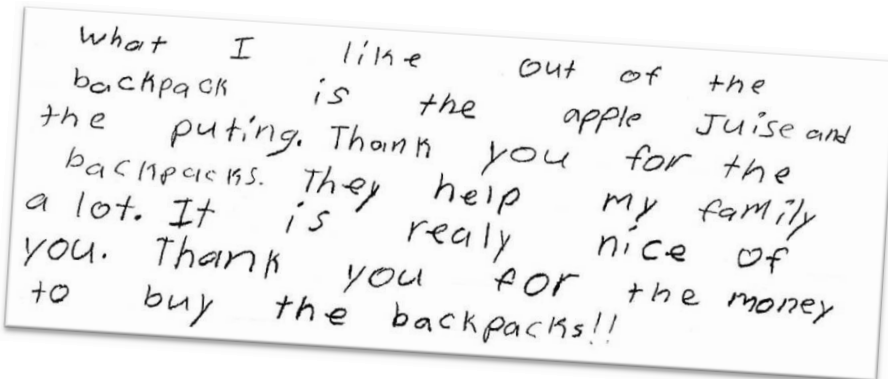 What I like out of the
backpack is the apple Juise and
the puting. Thank you for the
backpacks. They help my family
a lot. It is realy nice of
you. Thank you for the money
to buy the backpacks!!